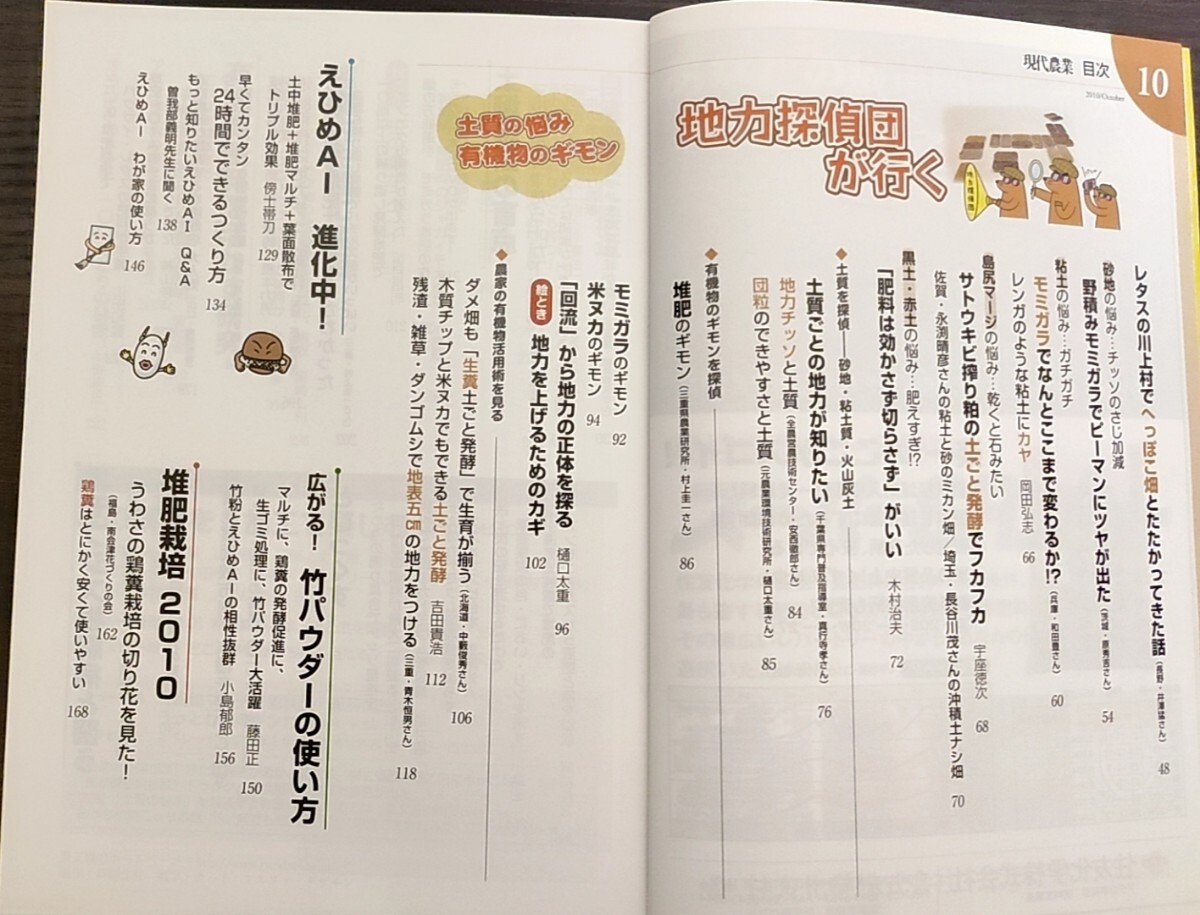 現代農業 目次
2010/October
10
地力探偵団
が行く
レタスの川上村でへっぽこ畑とたたかってきた話（長野・井澤猛さん） 48
砂地の悩み…チッソのさじ加減
野積みモミガラでピーマンにツヤが出た（茨城・原秀吉さん） 54
粘土の悩み…ガチガチ
モミガラでなんとここまで変わるか!?（兵庫・和田豊さん） 60
レンガのような粘土にカヤ 岡田弘志 66
島尻マージの悩み…乾くと石みたい
サトウキビ搾り粕の土ごと発酵でフカフカ 宇座徳次 68
佐賀・永渕晴彦さんの粘土と砂のミカン畑／埼玉・長谷川茂さんの沖積土ナシ畑 70
黒土・赤土の悩み…肥えすぎ!?
「肥料は効かさず切らさず」がいい 木村治夫 72
◆土質を探偵――砂地・粘土質・火山灰土
土質ごとの地力が知りたい（千葉県専門普及指導室・真行寺孝さん） 76
地力チッソと土質（全農営農技術センター・安西徹郎さん） 84
団粒のできやすさと土質（元農業環境技術研究所・樋口太重さん） 85
◆有機物のギモンを探偵
堆肥のギモン（三重県農業研究所・村上圭一さん） 86
土質の悩み
有機物のギモン
モミガラのギモン 92
米ヌカのギモン 94
「回流」から地力の正体を探る 樋口太重 96
絵とき 地力を上げるためのカギ 102
◆農家の有機物活用術を見る
ダメ畑も「生糞土ごと発酵」で生育が揃う（北海道・中藪俊秀さん） 106
木質チップと米ヌカでもできる土ごと発酵 吉田貴浩 112
残渣・雑草・ダンゴムシで地表五cmの地力をつける（三重・青木恒男さん） 118
えひめAI 進化中！
土中堆肥＋堆肥マルチ＋葉面散布で
トリプル効果 傍士帯刀 129
早くてカンタン
24時間でできるつくり方 134
もっと知りたいえひめAI Q&A
曽我部義明先生に聞く 138
えひめAI わが家の使い方 146
広がる！ 竹パウダーの使い方
マルチに、鶏糞の発酵促進に、
生ゴミ処理に、竹パウダー大活躍 藤田正 150
竹粉とえひめAIの相性抜群 小島郁郎 156
堆肥栽培 2010
うわさの鶏糞栽培の切り花を見た！
（福島・南会津花づくりの会） 162
鶏糞はとにかく安くて使いやすい 168